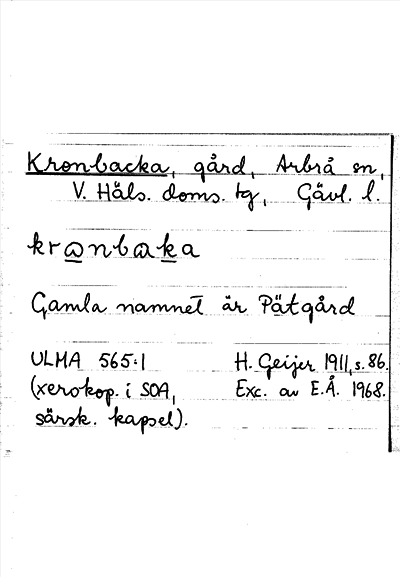 Kronbacka, gård, Arbrå sn,
V. Häls. doms. tg, Gävl. l.
kr@nb@ka
Gamla namnet är Pätgård
ULMA 565:1 H. Geijer 1911, s. 86.
(xerokop. i SOA, Exc. av E.Å. 1968.
särsk. kapsel).